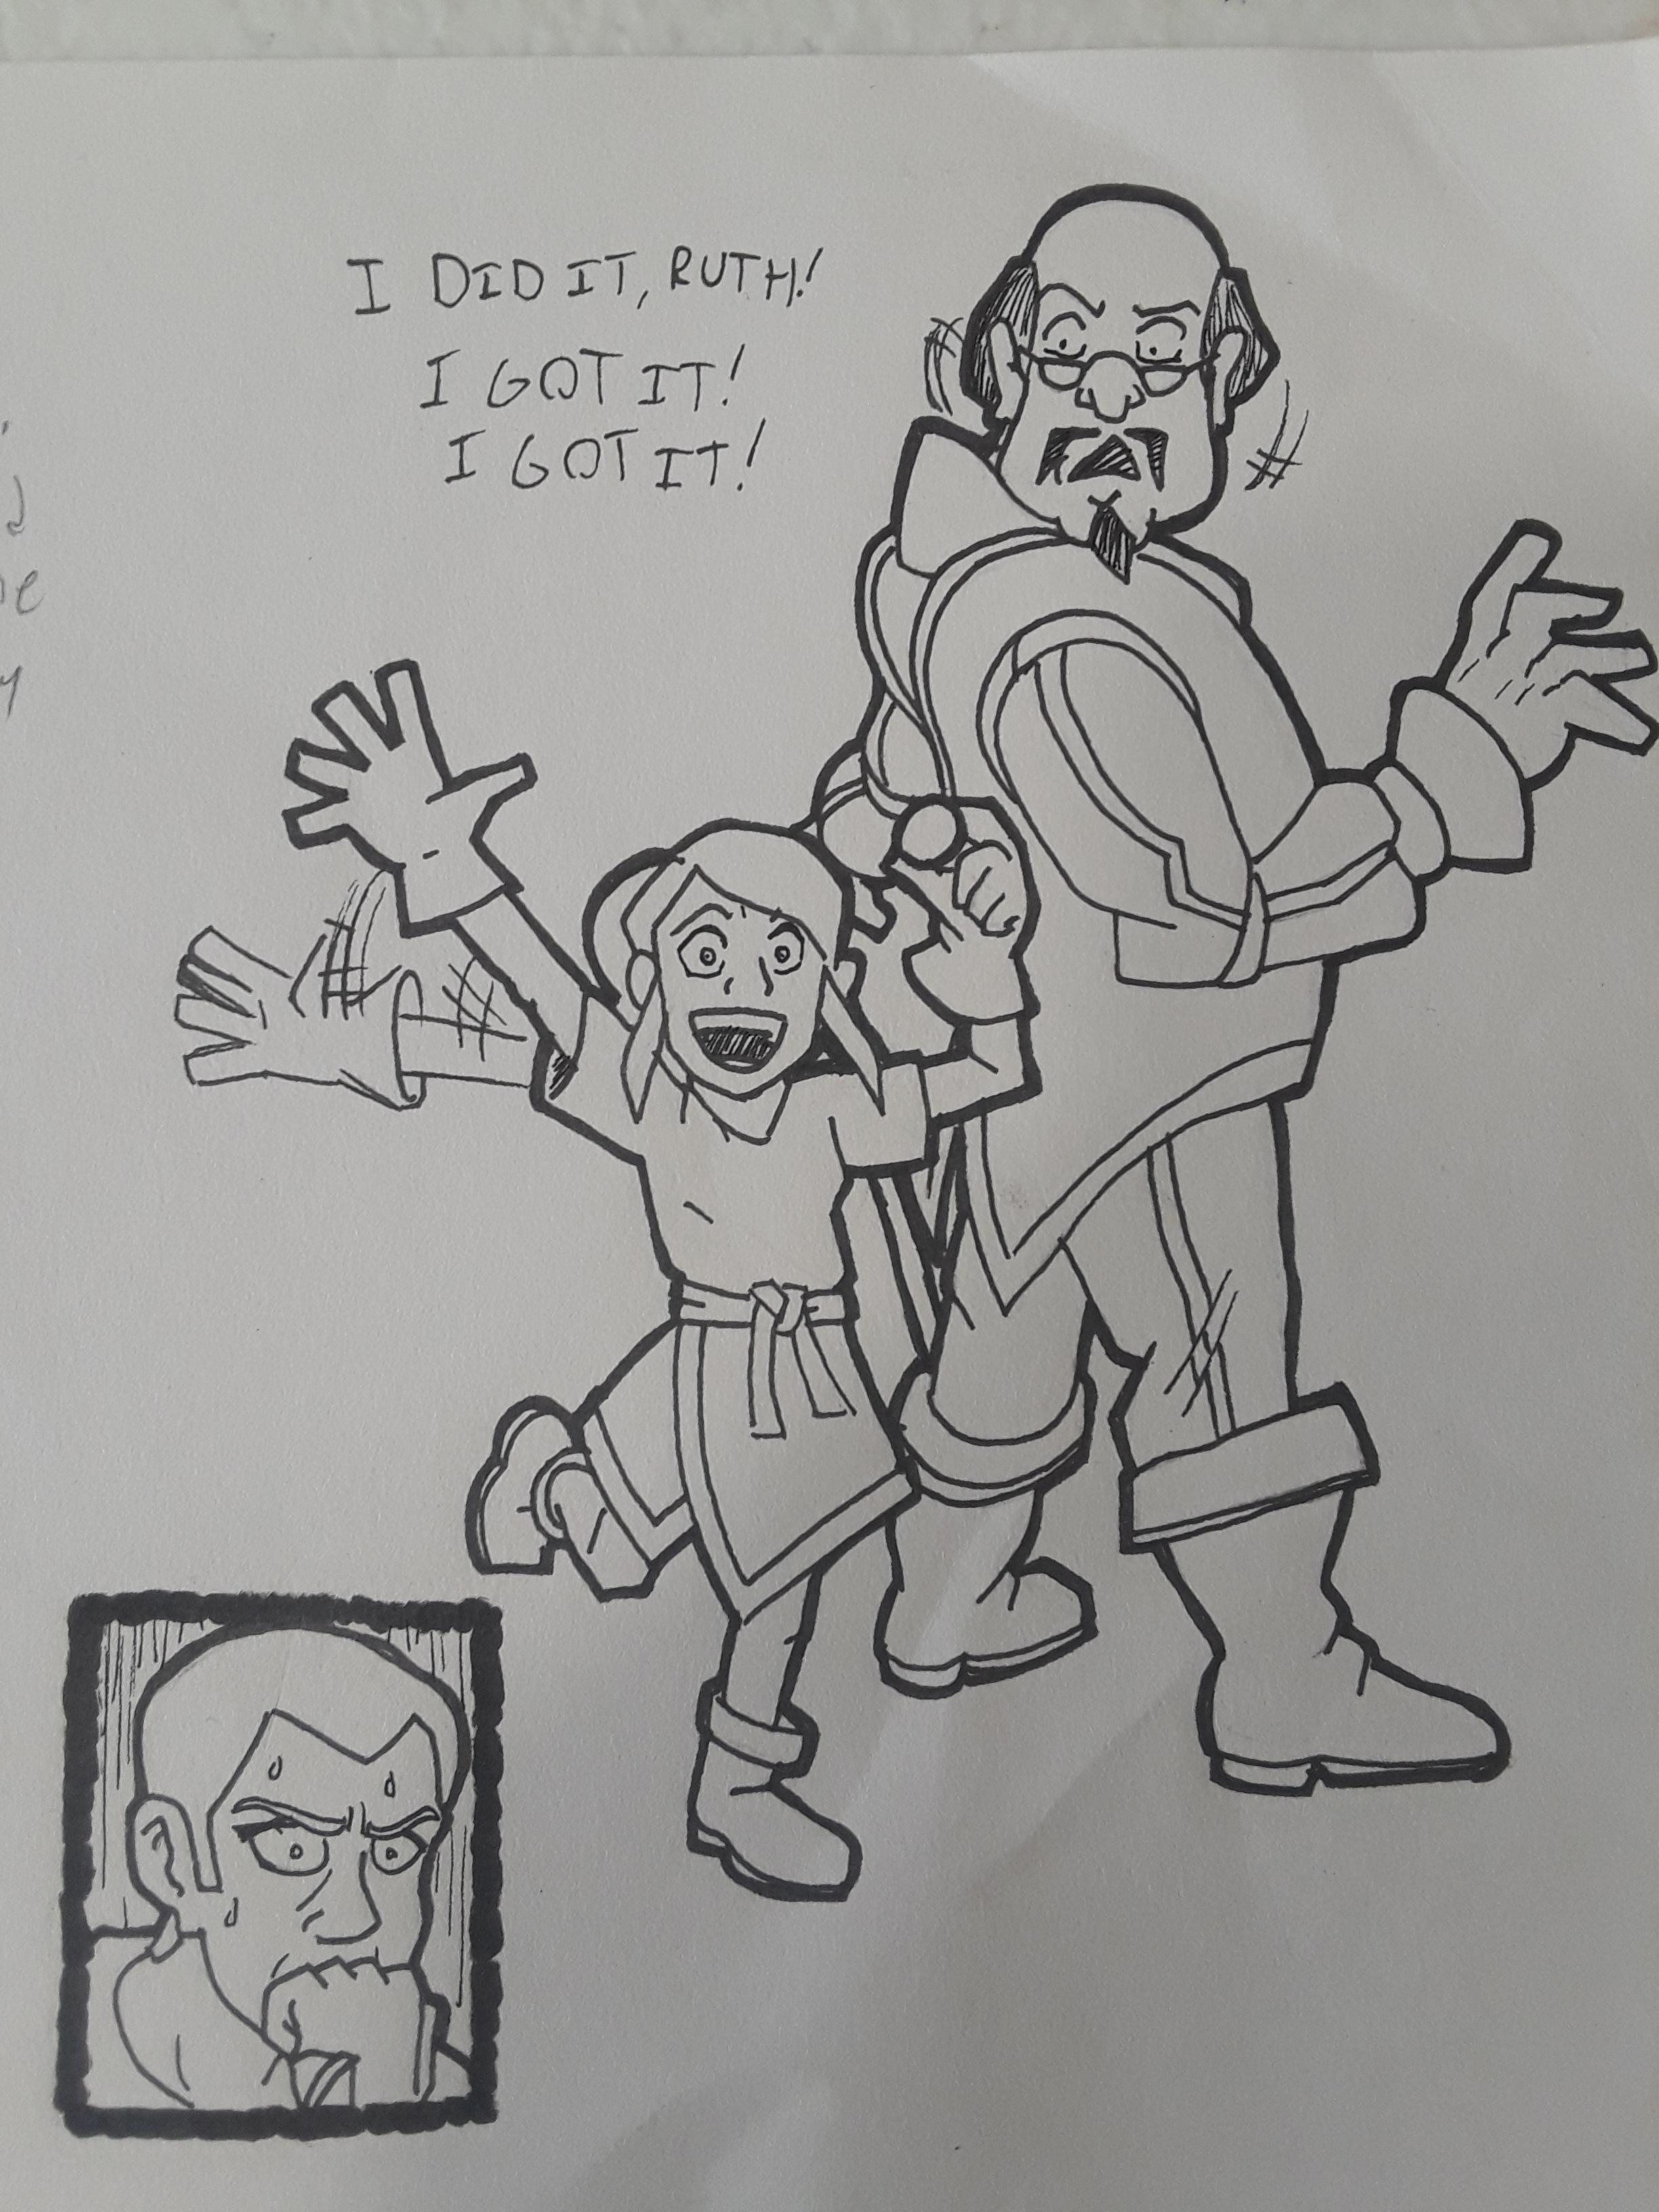 I DID IT, RUTH!
I GOT IT!
I GOT IT!